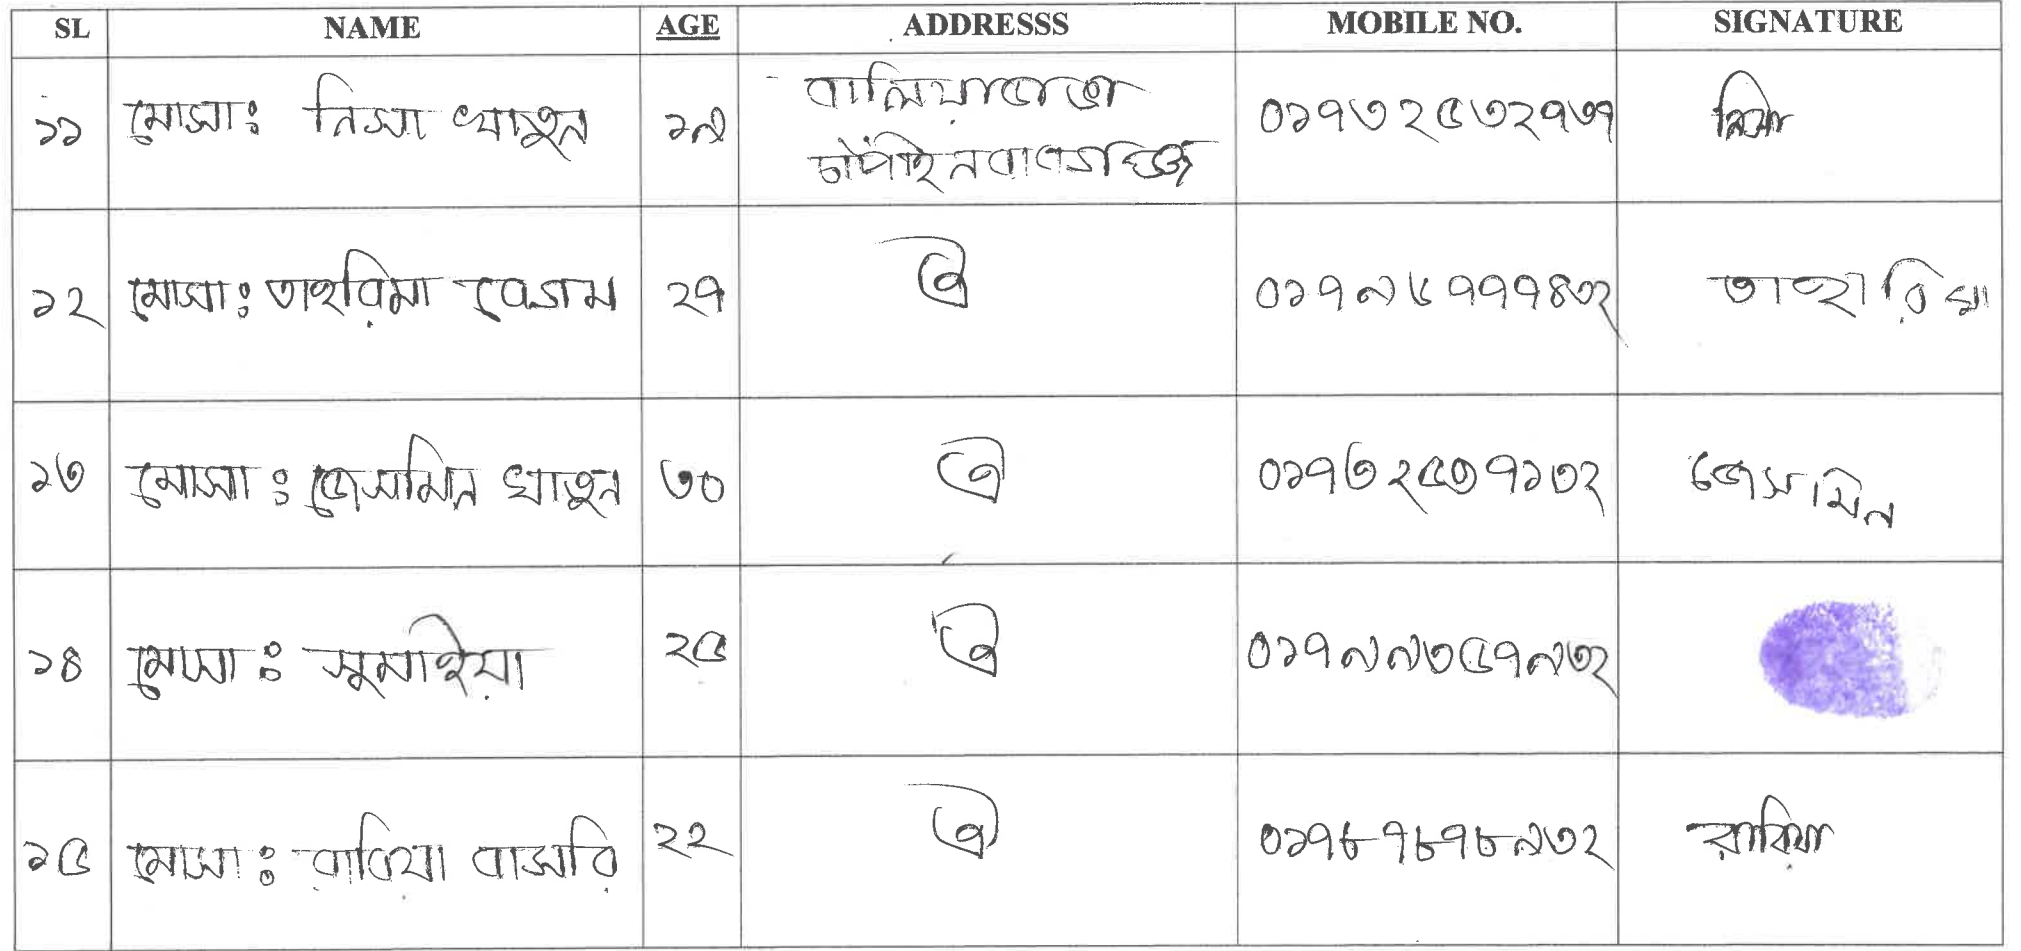 SL NAME AGE ADDRESSS MOBILE NO. SIGNATURE
১১ মোসাঃ নিসা খাতুন ১৯ বালিয়াডাঙ্গা ০১৭৩২৫৩২৭৩৭ নিসা
চাঁপাইনবাবগঞ্জ
১২ মোসাঃ তাহরিমা বেগম ২৭ ঐ ০১৭৯৫৭৭৭৪৩২ তাহারিমা
১৩ মোসাঃ জেসমিন খাতুন ৩০ ঐ ০১৭৩২৫৩৭১৩২ জেসমিন
১৪ মোসাঃ সুমাইয়া ২৫ ঐ ০১৭৯৯৩৫৭৯৩২
১৫ মোসাঃ রাবিয়া বাসরি ২২ ঐ ০১৭৮৭৮৭৮৯৩২ রাবিয়া